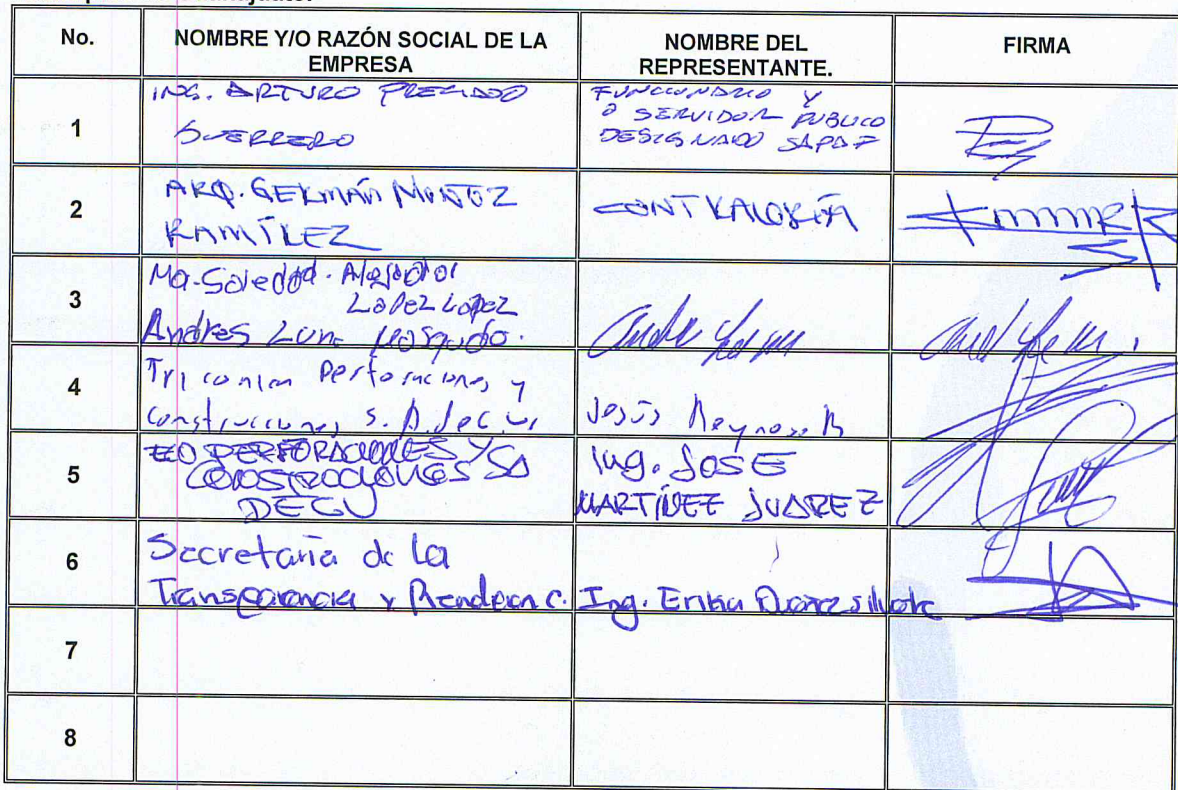 No.
NOMBRE Y/O RAZÓN SOCIAL DE LA
EMPRESA
NOMBRE DEL
REPRESENTANTE.
FIRMA
1
ING. ARTURO PRECIADO
GUERRERO
FUNCIONARIO Y
O SERVIDOR PUBLICO
DESIGNADO SAPAF
2
ARQ. GERMÁN MUÑOZ
RAMÍREZ
CONTRALORÍA
3
Ma. Soledad
Lopez Lopez
Andres Luna
4
Perforaciones y
Construcciones S.A. de C.V.
Jesús Reynoso
5
PERFORACIONES Y
CONSTRUCCIONES SA
DE CV
Ing. JOSE
MARTÍNEZ JUAREZ
6
Secretaría de la
Transparencia y Rendición C.
Ing. Erika
7
8